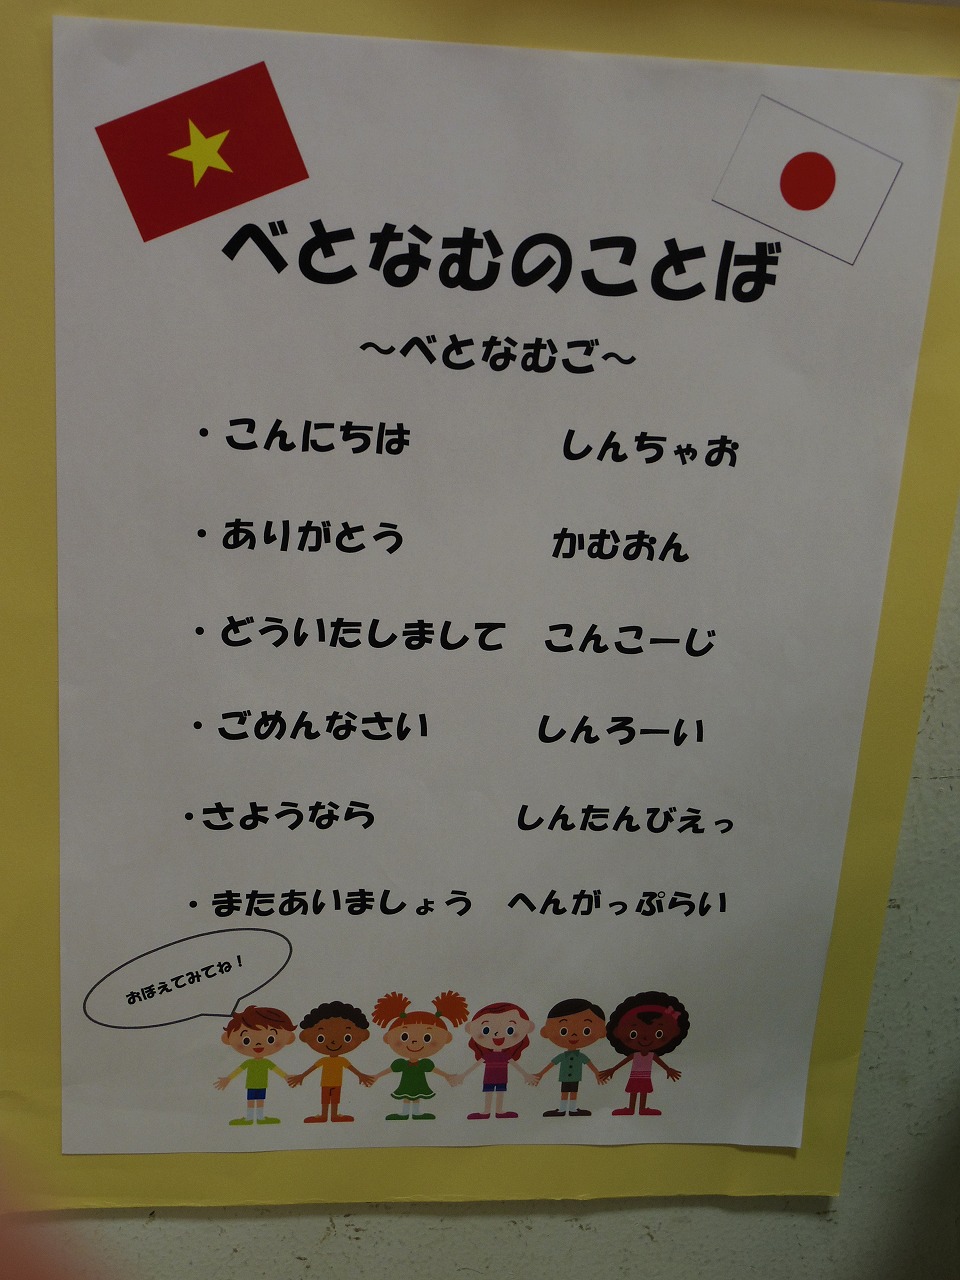 べとなむのことば
～べとなむご～
・こんにちは しんちゃお
・ありがとう かむおん
・どういたしまして こんこーじ
・ごめんなさい しんろーい
・さようなら しんたんびえっ
・またあいましょう へんがっぷらい
おぼえてみてね！